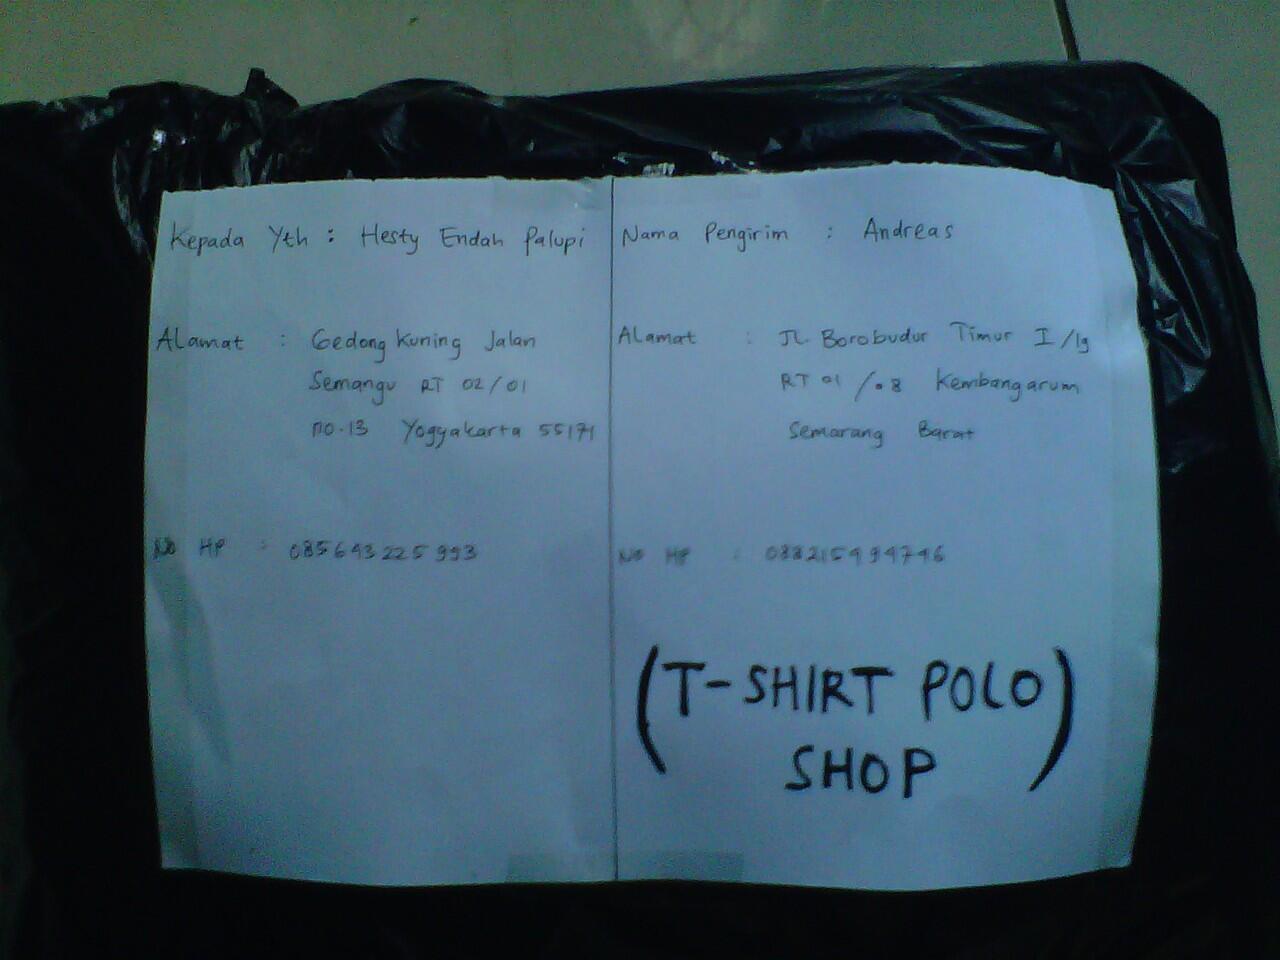 Kepada Yth : Hesty Endah Palupi
Alamat : Gedong Kuning Jalan
Semangu RT 02/01
no.13 Yogyakarta 55171
No HP : 085643225993
Nama Pengirim : Andreas
Alamat : JL. Borobudur Timur I /19
RT 01 /08 Kembangarum
Semarang Barat
No HP :
(T-SHIRT POLO
SHOP)